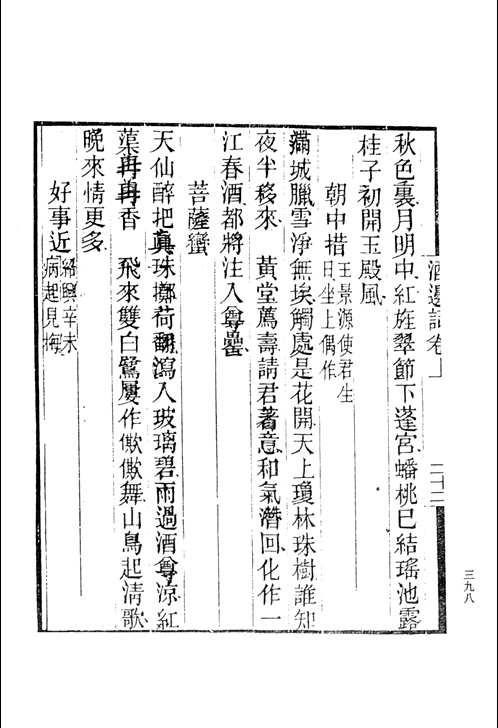 酒邊詞卷上
二十二
三九八
秋色裏月明中紅旌翠節下蓬宮蟠桃已結瑤池露
桂子初開玉殿風
朝中措王景源使君生
日坐上偶作
滿城臘雪淨無埃觸處是花開天上瓊林珠樹誰知
夜半移來　黃堂薦壽請君著意和氣潛回化作一
江春酒都將注入尊罍
菩薩蠻
天仙醉把真珠擲荷翻瀉入玻璃碧雨過酒尊涼紅
蕖冉冉香　飛來雙白鷺屢作僛僛舞山鳥起清歌
晚來情更多
好事近紹興辛未
病起見梅